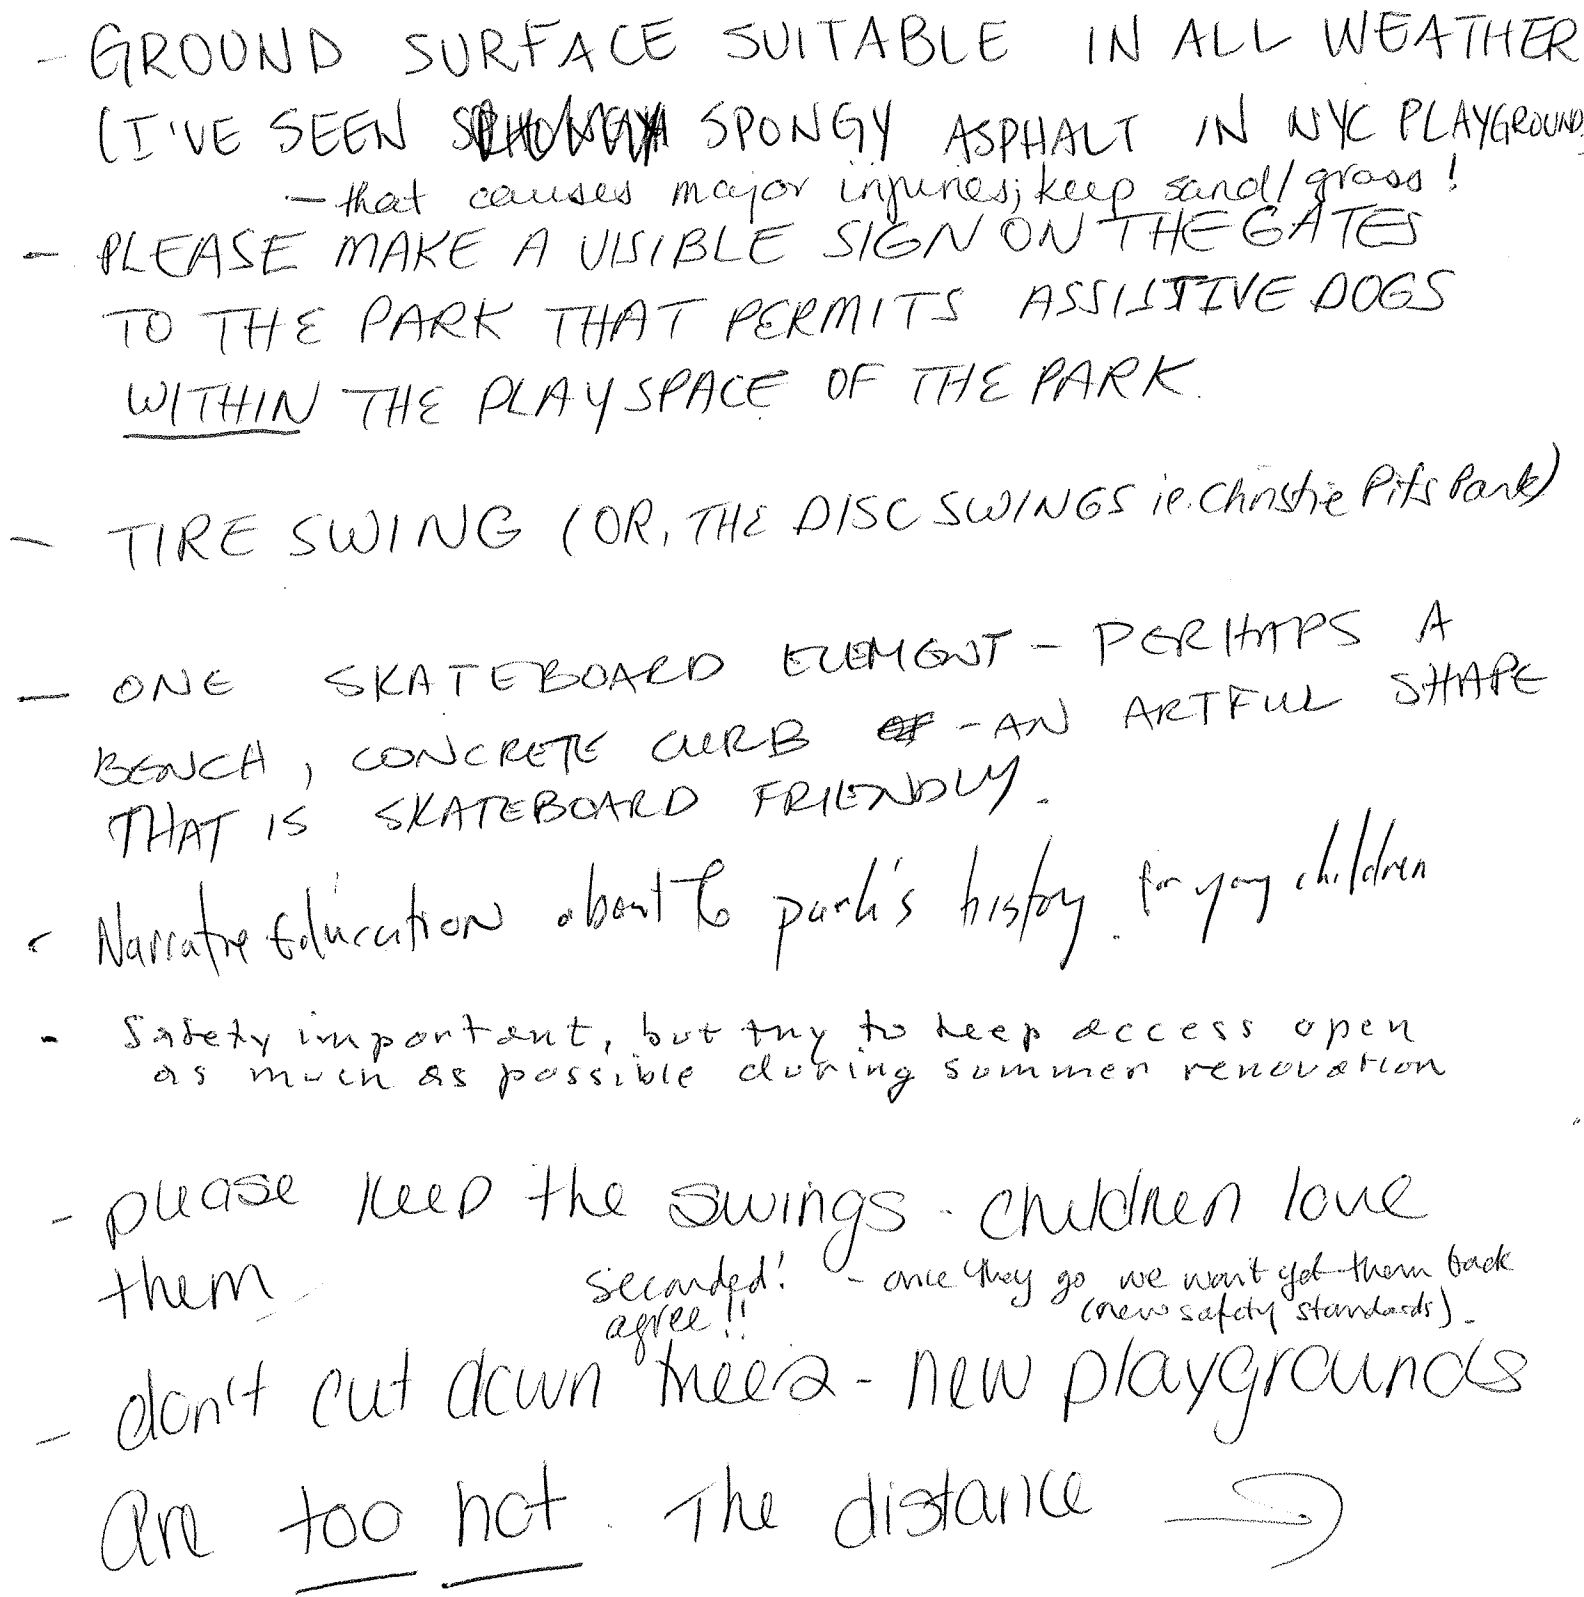 - GROUND SURFACE SUITABLE IN ALL WEATHER
(I'VE SEEN SPONGY ASPHALT IN NYC PLAYGROUND
- that causes major injuries; keep sand/grass!
- PLEASE MAKE A VISIBLE SIGN ON THE GATES
TO THE PARK THAT PERMITS ASSISTIVE DOGS
WITHIN THE PLAY SPACE OF THE PARK.
- TIRE SWING (OR, THE DISC SWINGS ie. Christie Pits Park)
- ONE SKATEBOARD ELEMENT - PERHAPS A
BENCH, CONCRETE CURB - AN ARTFUL SHAPE
THAT IS SKATEBOARD FRIENDLY.
- Narrative Education about the park's history. for young children
- Safety important, but try to keep access open
as much as possible during summer renovation
- please keep the swings - children love
them
seconded! - once they go we won't get them back
agree!! (new safety standards).
- don't cut down trees - new playgrounds
are too hot. The distance →